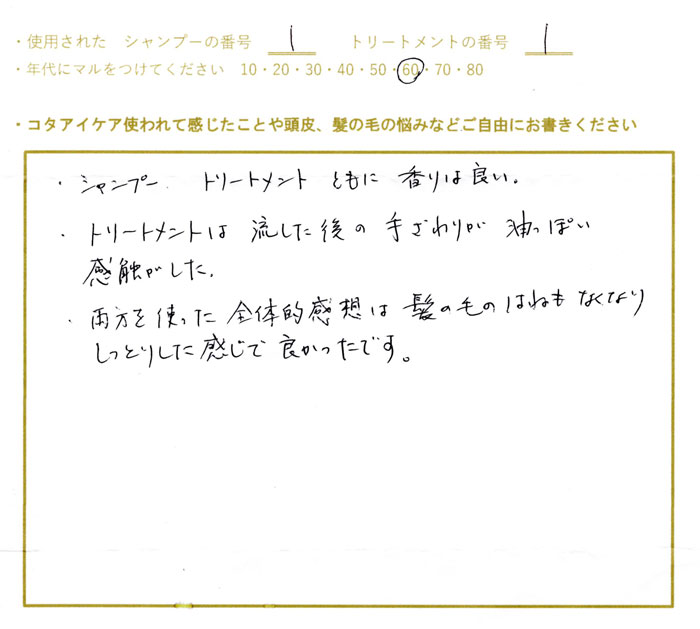 ・使用された シャンプーの番号 1 トリートメントの番号 1
・年代にマルをつけてください 10・20・30・40・50・60・70・80
・コタアイケア使われて感じたことや頭皮、髪の毛の悩みなどご自由にお書きください
・シャンプー トリートメント ともに 香りは良い。
・トリートメントは 流した後の 手ざわりが 油っぽい
感触がした。
・両方を使った 全体的感想は 髪の毛の はねも なくなり
しっとりした感じで 良かったです。